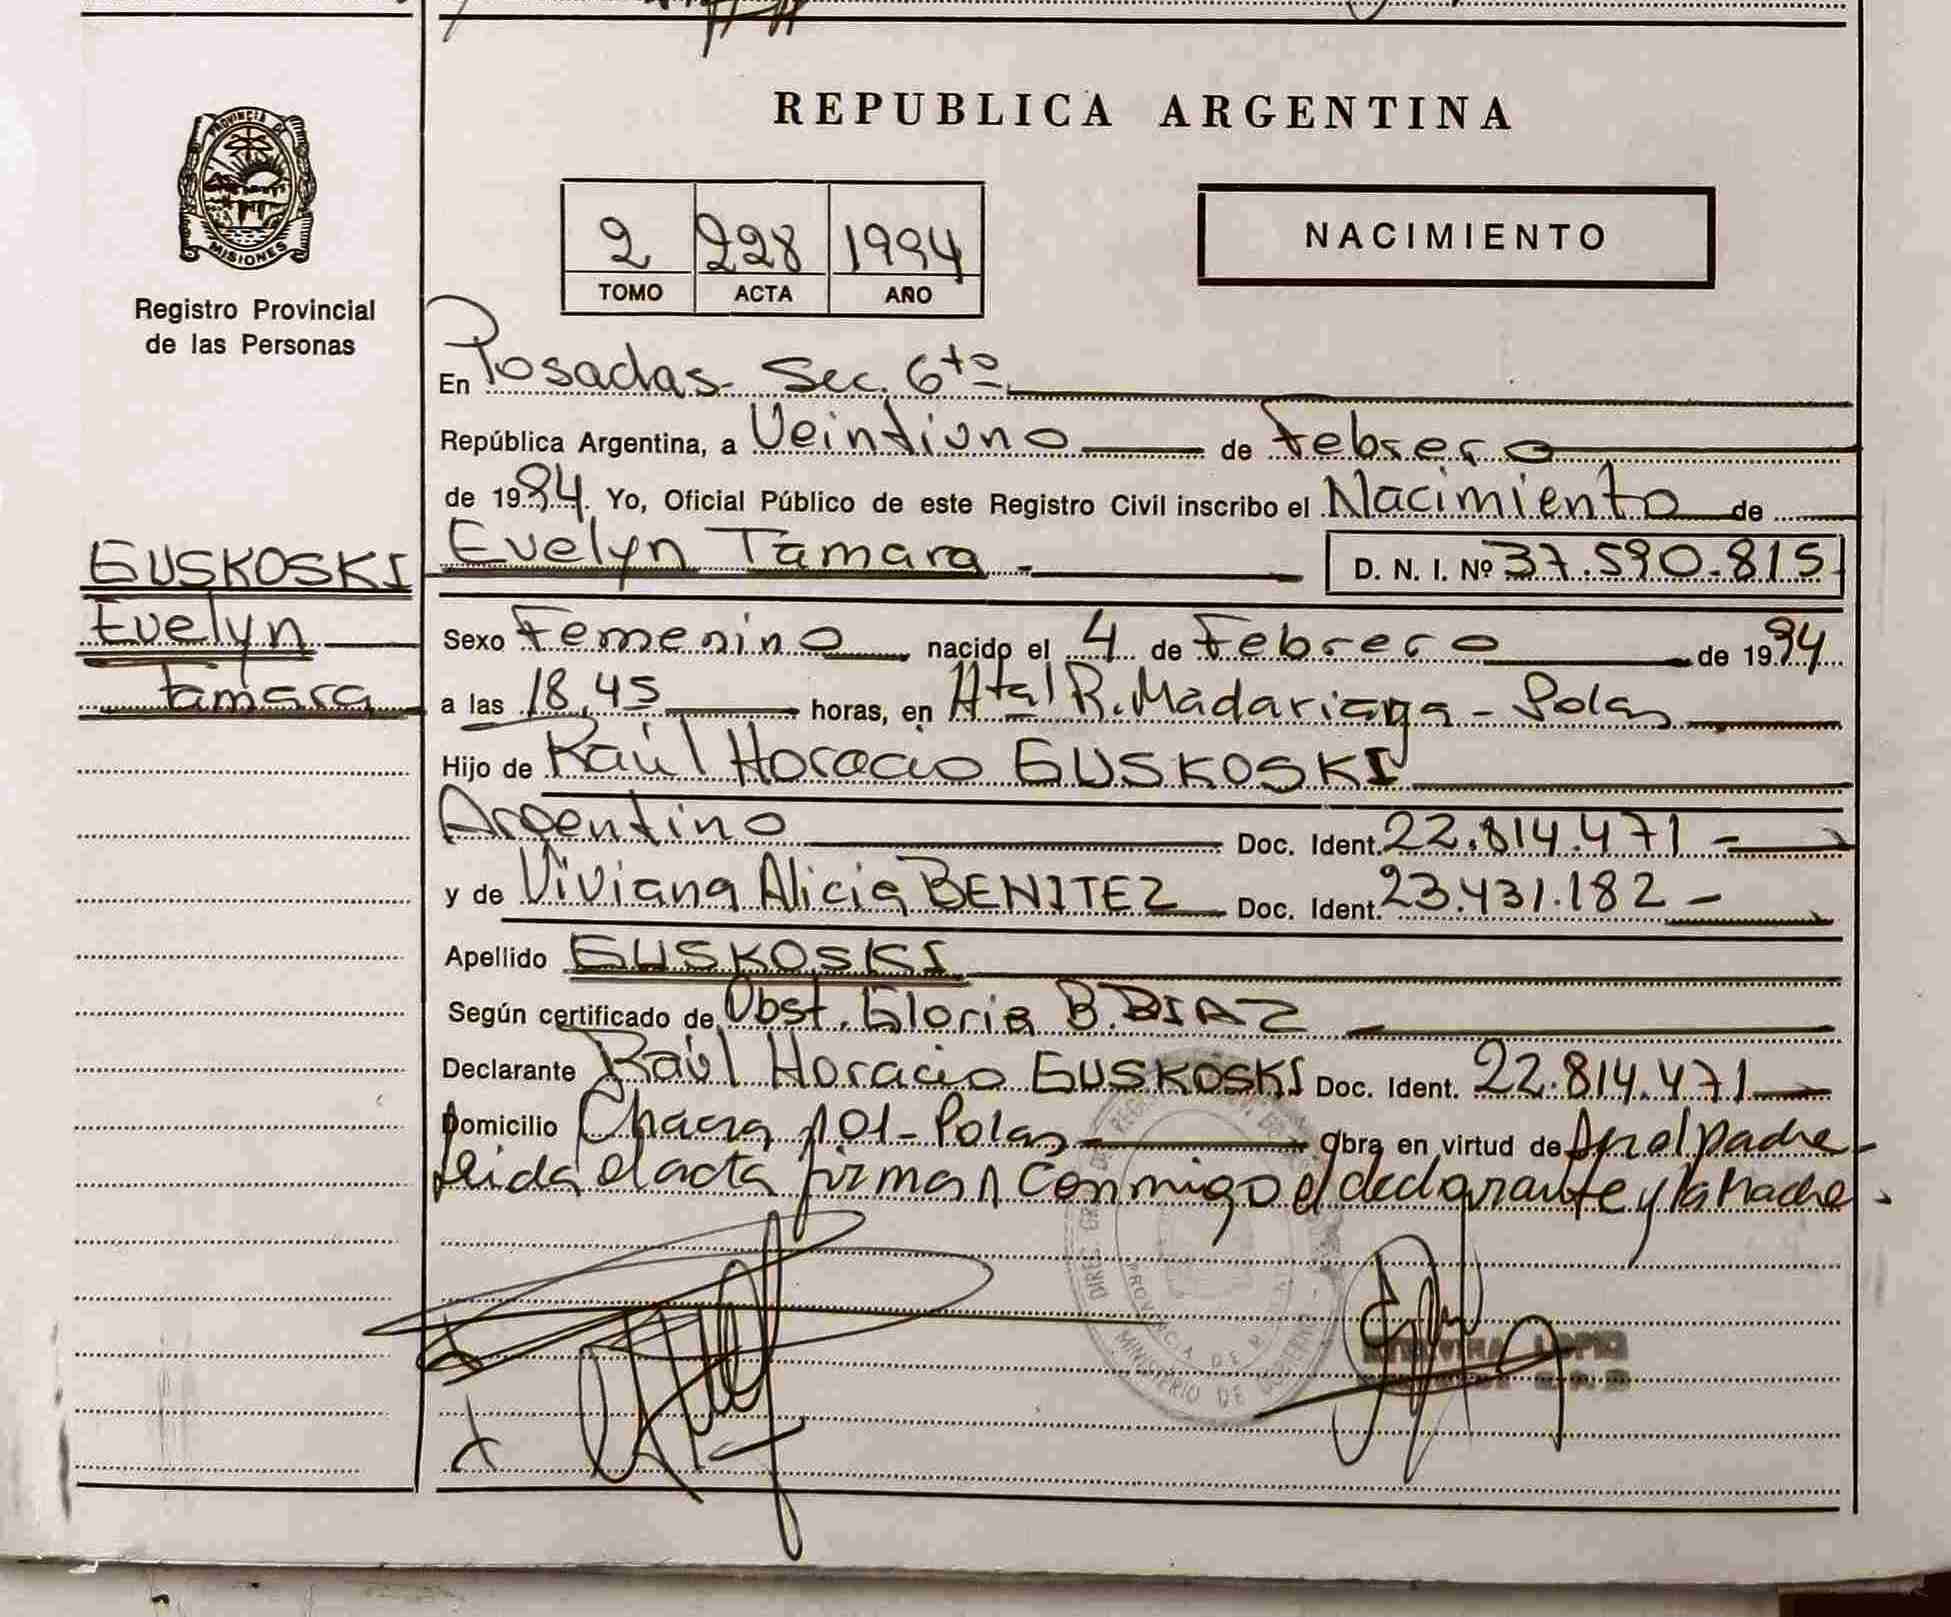 PROVINCIA DE
MISIONES
Registro Provincial
de las Personas
GUSKOSKI
Evelyn
Tamara
REPUBLICA ARGENTINA
2 228 1994
TOMO ACTA AÑO
NACIMIENTO
En Posadas- Sec. 6ta
República Argentina, a Veintiuno de Febrero
de 1994. Yo, Oficial Público de este Registro Civil inscribo el Nacimiento de
Evelyn Tamara - D. N. I. Nº 37.590.815
Sexo Femenino nacido el 4 de Febrero de 1994
a las 18,45 horas, en Htal R. Madariaga - Pdas
Hijo de Raúl Horacio GUSKOSKI
Argentino Doc. Ident. 22.814.471 -
y de Viviana Alicia BENITEZ Doc. Ident. 23.431.182 -
Apellido GUSKOSKI
Según certificado de Obst. Gloria B. DIAZ
Declarante Raúl Horacio GUSKOSKI Doc. Ident. 22.814.471
Domicilio Chacra 101 - Pdas Obra en virtud de padre
Leida el acta firman conmigo el declarante y la Madre.
PROVINCIA DE
MINISTERIO DE GOBIERNO